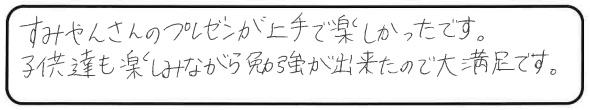 すみやんさんのプレゼンが上手で楽しかったです。
子供達も楽しみながら勉強が出来たので大満足です。